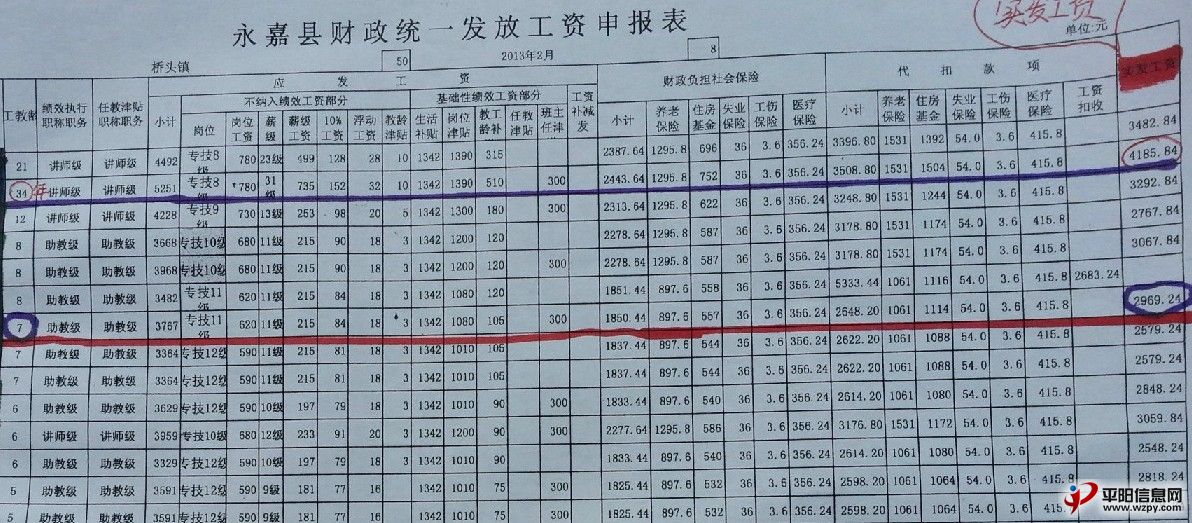 实发工资
永嘉县财政统一发放工资申报表
桥头镇 50 2013年2月 8 单位:元
应发工资 财政负担社会保险 代扣款项 实发工资
不纳入绩效工资部分 基础性绩效工资部分
绩效执行职称职务 任教津贴职称职务 小计 岗位 岗位工资 薪级 薪级工资 10%工资 浮动工资 教龄津贴 生活补贴 岗位津贴 教工龄补 任教津贴 班主任津 工资补减发 小计 养老保险 住房基金 失业保险 工伤保险 医疗保险 小计 养老保险 住房基金 失业保险 工伤保险 医疗保险 工资扣收
21 讲师级 讲师级 4492 专技8级 780 23级 499 128 28 10 1342 1390 315 2387.64 1295.8 696 36 3.6 356.24 3396.80 1531 1392 54.0 3.6 415.8 3482.84
34 年 讲师级 讲师级 5251 专技8级 780 31级 735 152 32 10 1342 1390 510 300 2443.64 1295.8 752 36 3.6 356.24 3508.80 1531 1504 54.0 3.6 415.8 4185.84
12 讲师级 讲师级 4228 专技9级 730 13级 253 98 20 5 1342 1300 180 300 2313.64 1295.8 622 36 3.6 356.24 3248.80 1531 1244 54.0 3.6 415.8 3292.84
8 助教级 助教级 3668 专技10级 680 11级 215 90 18 3 1342 1200 120 2278.64 1295.8 587 36 3.6 356.24 3178.80 1531 1174 54.0 3.6 415.8 2767.84
8 助教级 助教级 3968 专技10级 680 11级 215 90 18 3 1342 1200 120 300 2278.64 1295.8 587 36 3.6 356.24 3178.80 1531 1174 54.0 3.6 415.8 3067.84
8 助教级 助教级 3482 专技11级 620 11级 215 84 18 3 1342 1080 120 1851.44 897.6 558 36 3.6 356.24 5333.44 1061 1116 54.0 3.6 415.8 2683.24
7 助教级 助教级 3767 专技11级 620 11级 215 84 18 3 1342 1080 105 300 1850.44 897.6 557 36 3.6 356.24 2648.20 1061 1114 54.0 3.6 415.8 2969.24
7 助教级 助教级 3364 专技12级 590 11级 215 81 18 3 1342 1010 105 1837.44 897.6 544 36 3.6 356.24 2622.20 1061 1088 54.0 3.6 415.8 2579.24
7 助教级 助教级 3364 专技12级 590 11级 215 81 18 3 1342 1010 105 1837.44 897.6 544 36 3.6 356.24 2622.20 1061 1088 54.0 3.6 415.8 2579.24
6 助教级 助教级 3629 专技12级 590 10级 197 79 18 3 1342 1010 90 300 1833.44 897.6 540 36 3.6 356.24 2614.20 1061 1080 54.0 3.6 415.8 2848.24
6 讲师级 讲师级 3959 专技10级 680 12级 233 91 20 3 1342 1200 90 300 2277.64 1295.8 586 36 3.6 356.24 3176.80 1531 1172 54.0 3.6 415.8 3059.84
6 助教级 助教级 3329 专技12级 590 10级 197 79 18 3 1342 1010 90 1833.44 897.6 540 36 3.6 356.24 2614.20 1061 1080 54.0 3.6 415.8 2548.24
5 助教级 助教级 3591 专技12级 590 9级 181 77 16 1342 1010 75 300 1825.44 897.6 532 36 3.6 356.24 2598.20 1061 1064 54.0 3.6 415.8 2818.24
5 助教级 助教级 3591 专技12级 590 9级 181 77 16 1342 1010 75 300 1825.44 897.6 532 36 3.6 356.24 2598.20 1061 1064 54.0 3.6
平阳信息网
www.wzpy.com